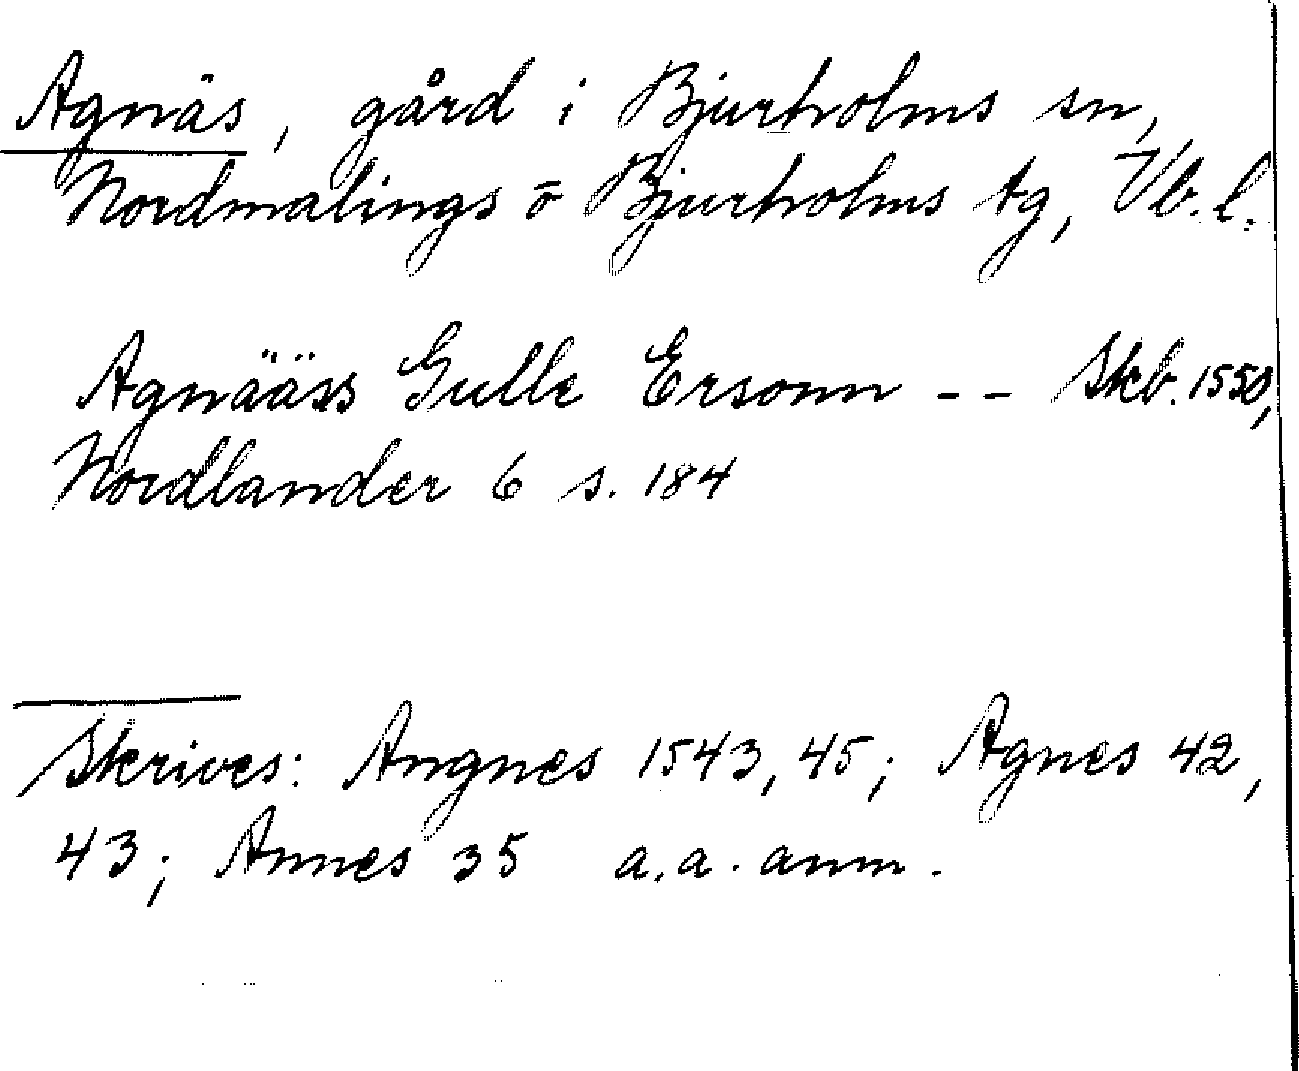 Agnäs, gård i Bjurholms sn,
Nordmalings o Bjurholms tg, Vb.l.
Agnääss Gulle Ersonn -- Skb. 1550,
Nordlander 6 s. 184
Skrives: Angnes 1543, 45; Agnes 42,
43; Annes 35 a.a. anm.